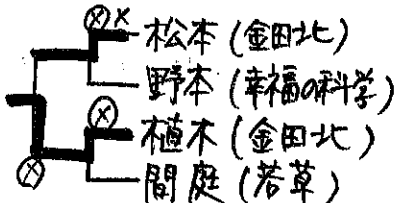 ⓧ x 松本(金田北)
野本(幸福の科学)
ⓧ 植木(金田北)
ⓧ 間庭(若草)